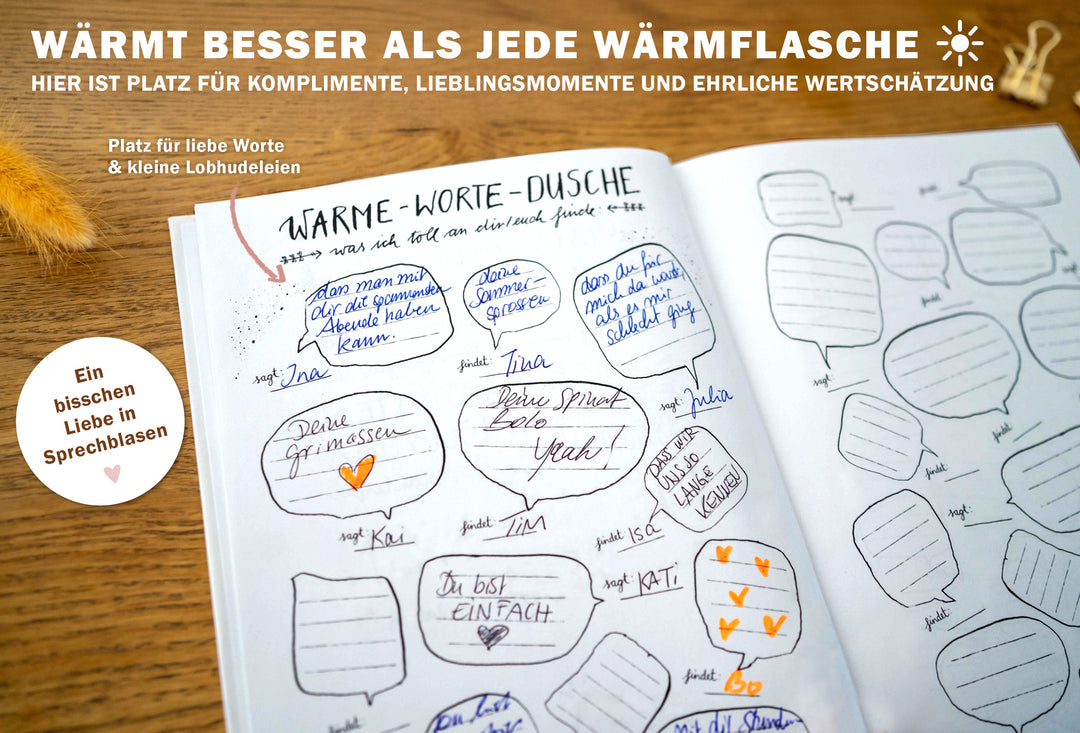 WÄRMT BESSER ALS JEDE WÄRMFLASCHE
HIER IST PLATZ FÜR KOMPLIMENTE, LIEBLINGSMOMENTE UND EHRLICHE WERTSCHÄTZUNG
Platz für liebe Worte
& kleine Lobhudeleien
WARME-WORTE-DUSCHE
was ich toll an dir/euch finde:
dass man mit
dir die spannendsten
Abende haben
kann.
sagt: Ina
deine
Sommer-
sprossen
findet: Tina
dass du für
mich da warst,
als es mir
schlecht ging
sagt: Julia
Ein
bisschen
Liebe in
Sprechblasen
Deine
grimassen
sagt: Kai
Deine Spinat
Bolo
Yeah!
findet: TIM
DASS WIR
UNS SO
LANGE
KENNEN
findet: ISA
Du bist
EINFACH
sagt: KATI
findet: Bo
findet
Du bist
mit dir Stunden-
sagt
findet
sagt
findet
sagt
findet
findet
sagt:
findet: